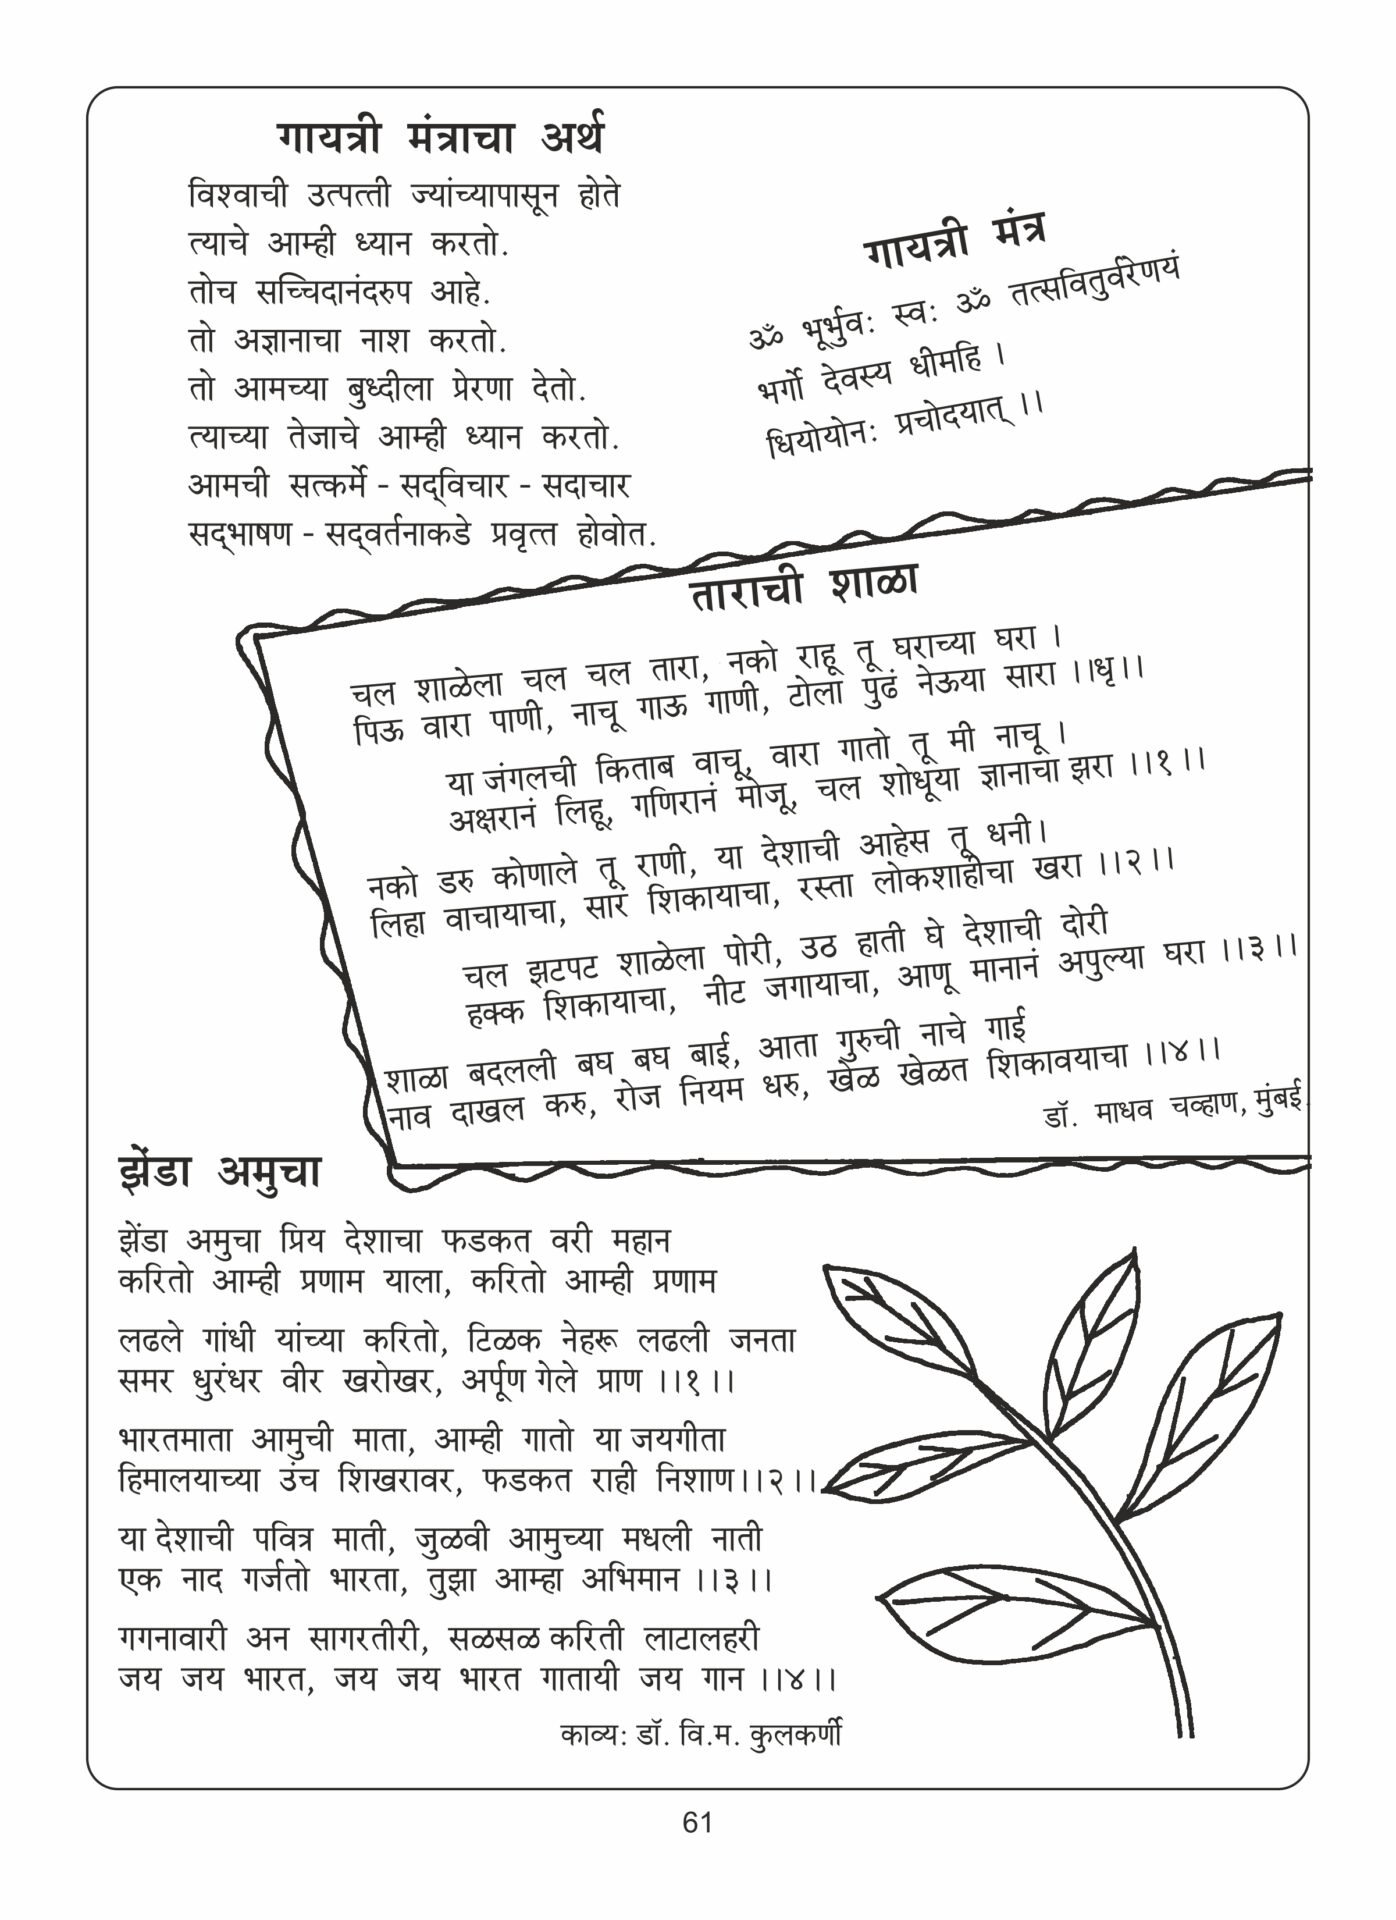 गायत्री मंत्राचा अर्थ
विश्वाची उत्पत्ती ज्यांच्यापासून होते
त्याचे आम्ही ध्यान करतो.
तोच सच्चिदानंदरुप आहे.
तो अज्ञानाचा नाश करतो.
तो आमच्या बुध्दीला प्रेरणा देतो.
त्याच्या तेजाचे आम्ही ध्यान करतो.
आमची सत्कर्मे - सद्विचार - सदाचार
सद्भाषण - सद्वर्तनाकडे प्रवृत्त होवोत.
गायत्री मंत्र
ॐ भूर्भुवः स्वः ॐ तत्सवितुर्वरेणयं
भर्गो देवस्य धीमहि ।
धियोयोनः प्रचोदयात् ।।
ताराची शाळा
चल शाळेला चल चल तारा, नको राहू तू घराच्या घरा ।
पिऊ वारा पाणी, नाचू गाऊ गाणी, टोला पुढं नेऊया सारा ।।धृ।।
या जंगलची किताब वाचू, वारा गातो तू मी नाचू ।
अक्षरानं लिहू, गणिरानं मोजू, चल शोधूया ज्ञानाचा झरा ।।१।।
नको डरु कोणाले तू राणी, या देशाची आहेस तू धनी।
लिहा वाचायाचा, सारं शिकायाचा, रस्ता लोकशाहीचा खरा ।।२।।
चल झटपट शाळेला पोरी, उठ हाती घे देशाची दोरी
हक्क शिकायाचा, नीट जगायाचा, आणू मानानं अपुल्या घरा ।।३।।
शाळा बदलली बघ बघ बाई, आता गुरुची नाचे गाई
नाव दाखल करु, रोज नियम धरु, खेळ खेळत शिकावयाचा ।।४।।
डॉ. माधव चव्हाण, मुंबई.
झेंडा अमुचा
झेंडा अमुचा प्रिय देशाचा फडकत वरी महान
करितो आम्ही प्रणाम याला, करितो आम्ही प्रणाम
लढले गांधी यांच्या करितो, टिळक नेहरू लढली जनता
समर धुरंधर वीर खरोखर, अर्पूण गेले प्राण ।।१।।
भारतमाता आमुची माता, आम्ही गातो या जयगीता
हिमालयाच्या उंच शिखरावर, फडकत राही निशाण।।२।।
या देशाची पवित्र माती, जुळवी आमुच्या मधली नाती
एक नाद गर्जतो भारता, तुझा आम्हा अभिमान ।।३।।
गगनावारी अन सागरतीरी, सळसळ करिती लाटालहरी
जय जय भारत, जय जय भारत गातायी जय गान ।।४।।
काव्य: डॉ. वि.म. कुलकर्णी
61